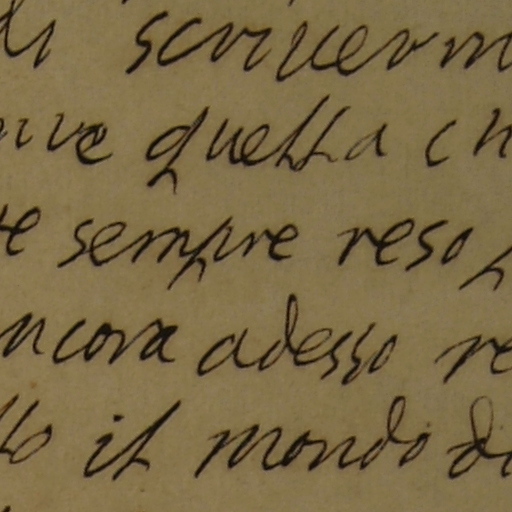 di scriverm
quella ch
te sempre reso
ncora adesso re
il mondo di